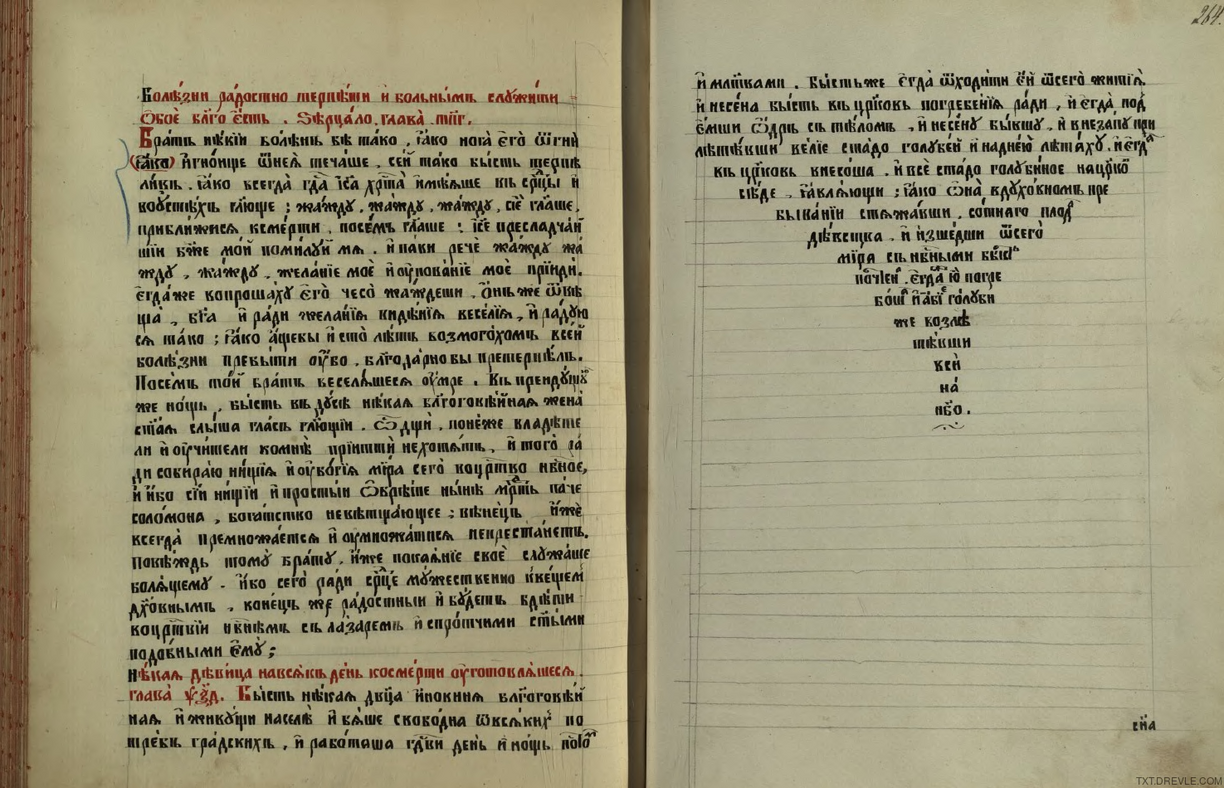 Болѣ́зни ра́достно терпѣ́ти и҆ больнымъ слꙋжи́ти
Ѻбоѐ бл҃го є҆́сть . Ѕе́рцало . глава̀ .тп҃г.
Бра́тъ нѣ́кїй боле́нъ бѣ̀ та́ко , ꙗ҆́ко нога̀ є҆гѡ̀ ѿгни̑
(ꙗ҆́кѡ) и҆ гно́ище ѿнеѧ̀ теча́ше , се́й та́ко бы́сть терпѣ
ли́въ . ꙗ҆́ко всегда̀ гд҇а і҆с҃а хрⷭ҇та̀ и҆мѣ́ѧше въ ср҃цы и҆
во ᲂу҆стѣ́хъ гл҃юще ; жа́ждꙋ , жа́ждꙋ , жа́ждꙋ , сїѐ гл҃аше ,
прибли́жисѧ ксме́рти . посе́мъ гл҃аше : і҆с҃е пресладча́й
шїй бж҃е мо́й поми́лꙋй мѧ . и҆ па́ки речѐ жа́ждꙋ жа́
ждꙋ , жа́ждꙋ , жела́нїе моѐ и҆ ᲂу҆пова́нїе моѐ прїидѝ .
є҆гда́же вопроша́хꙋ є҆го̀ чесо̀ жа́ждеши . ѻ҆́нъ же ѿвѣ
ща̀ , бг҃а и҆ ра́ди жела́нїѧ ви́дѣнїѧ весе́лїѧ , и҆ ра́дꙋю
сѧ та́ко ; ꙗ҆́ко а҆́щебы и҆ сто̀ лѣ́тъ возмого́хомъ в се́й
болѣ́зни пребы́ти ᲂу҆́бо , бл҃года́рно бы претерпѣ́лъ .
Посе́мъ то́й бра́тъ веселѧ́шесѧ ᲂу҆́мре . Въ пре́идꙋщꙋ
же но́щь , бы́сть въ дꙋсѣ̀ нѣ́каѧ бл҃гоговѣ́йнаѧ жена̀
ст҃а́ѧ слы́ша гла́съ гл҃ющїй . Ѽ дщѝ , поне́же владѣ́те
ли и҆ ᲂу҆чи́тели комнѣ̀ прїи́ттѝ не хотѧ́тъ , и҆ того̀ ра́
ди собира́ю ни́щїѧ и҆ ᲂу҆бо́гїѧ мі́ра сего̀ во црⷭ҇тво нбⷭ҇ное ,
и҆́бо сі́и ни́щїи и҆ простыи ѡ҆брѣ́те ны́нѣ мⷣрⷭ҇ть па́че
соломо́на , бога́тство не ветша́ющее ; вѣне́цъ и҆́же
всегда̀ премножа́етсѧ и҆ ᲂу҆множа́тисѧ непреста́нетъ .
Повѣ́ждь томꙋ̀ бра́тꙋ , и҆́же покаѧ́нїе своѐ слꙋжа́ше
болѧ́щемꙋ . и҆́бо сегѡ̀ ра́ди ср҃це мꙋ́жественно
дх҃о́внымъ , коне́цъ же ра́достный и҆ бꙋ́детъ
во црⷭ҇твїи нбⷭ҇нѣмъ съ ла́заремъ и҆ спро́тчими ст҃ы́ми
подо́бными є҆мꙋ̀ ;
Нѣ́каѧ дѣви́ца навсѧ́къ де́нь ко сме́рти ᲂу҆готовлѧ́шесѧ .
глава̀ ѱ҃ѯд . Бы́сть нѣ́каѧ дв҃и́ца и҆́нокинѧ бл҃гоговѣ́й
наѧ и҆ живꙋ́щи на селѣ̀ и҆ бѧ́ше свобо́дна ѿвсѧ́кихъ по
тре́бъ гра́дскихъ , и҆ рабо́таша гдⷭ҇ви де́нь и҆ но́щь посто́мъ
и҆ мл҃твами . бы́сть же є҆гда̀ ѿходи́ти є҆́й ѿсего̀ житїѧ̀
и҆ несе́на бы́сть въ цр҃ковь погребе́нїѧ ра́ди , и҆ є҆гда̀ под
є́мши ѻ҆́дръ съ тѣ́ломъ , и҆ несе́нꙋ бы́вшꙋ , и҆ внеза́пꙋ при
лѣтѣ́вши ве́лїе ста́до голꙋбе́й и҆ наднею̀ лѣта́хꙋ . и҆ є҆гда̀
въ цр҃ковь внесо́ша . и҆ всѐ ста́до голꙋби́ное на цр҃ко
сѣ́де , ꙗ҆влѧ́ющи ; ꙗ҆́ко ѻ҆на̀ в дꙋхо́вномъ пре
быва́нїи стѧжа́вши , со́тнаго пло́д
дѣ́вства . и҆ и҆зше́дши ѿсего̀
мі́ра съ нбⷭ҇ными
почїе́ . є҆гда́ ю҆ погре
бо́ша и҆ а҆́бїе го́лꙋби
же возлѣ
тѣ́вши
всѝ
на̀
нб҃о .
сїѧ
264.
TXT.DREVLE.COM